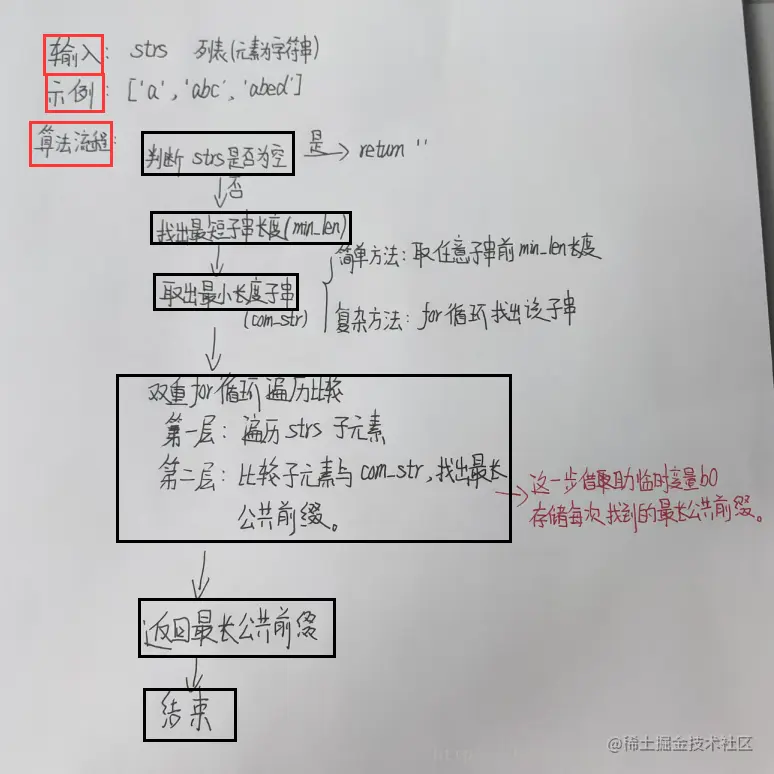 输入: strs 列表(元素为字符串)
示例: ['a','abc','abed']
算法流程:
判断 strs是否为空
是
return ''
否
找出最短子串长度(min_len)
取出最小长度子串
(com_str)
简单方法: 取任意子串前min_len长度
复杂方法: for循环找出该子串
双重for循环遍历比较
第一层: 遍历 strs 子元素
第二层: 比较子元素与com_str,找出最长
公共前缀。
这一步借助临时变量b0
存储每次找到的最长公共前缀。
返回最长公共前缀
结束
@稀土掘金技术社区